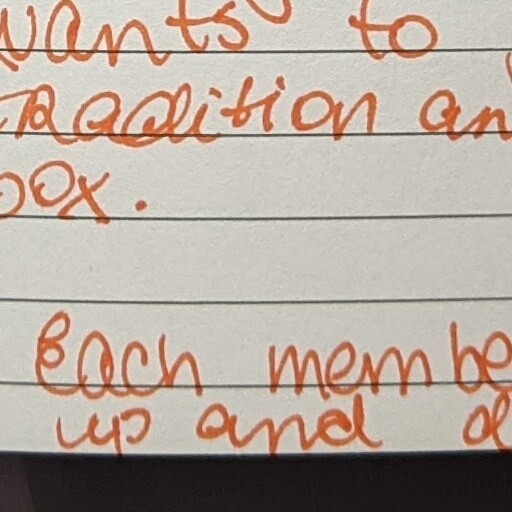 wants to
tradition an
box.
Each membe
up and d